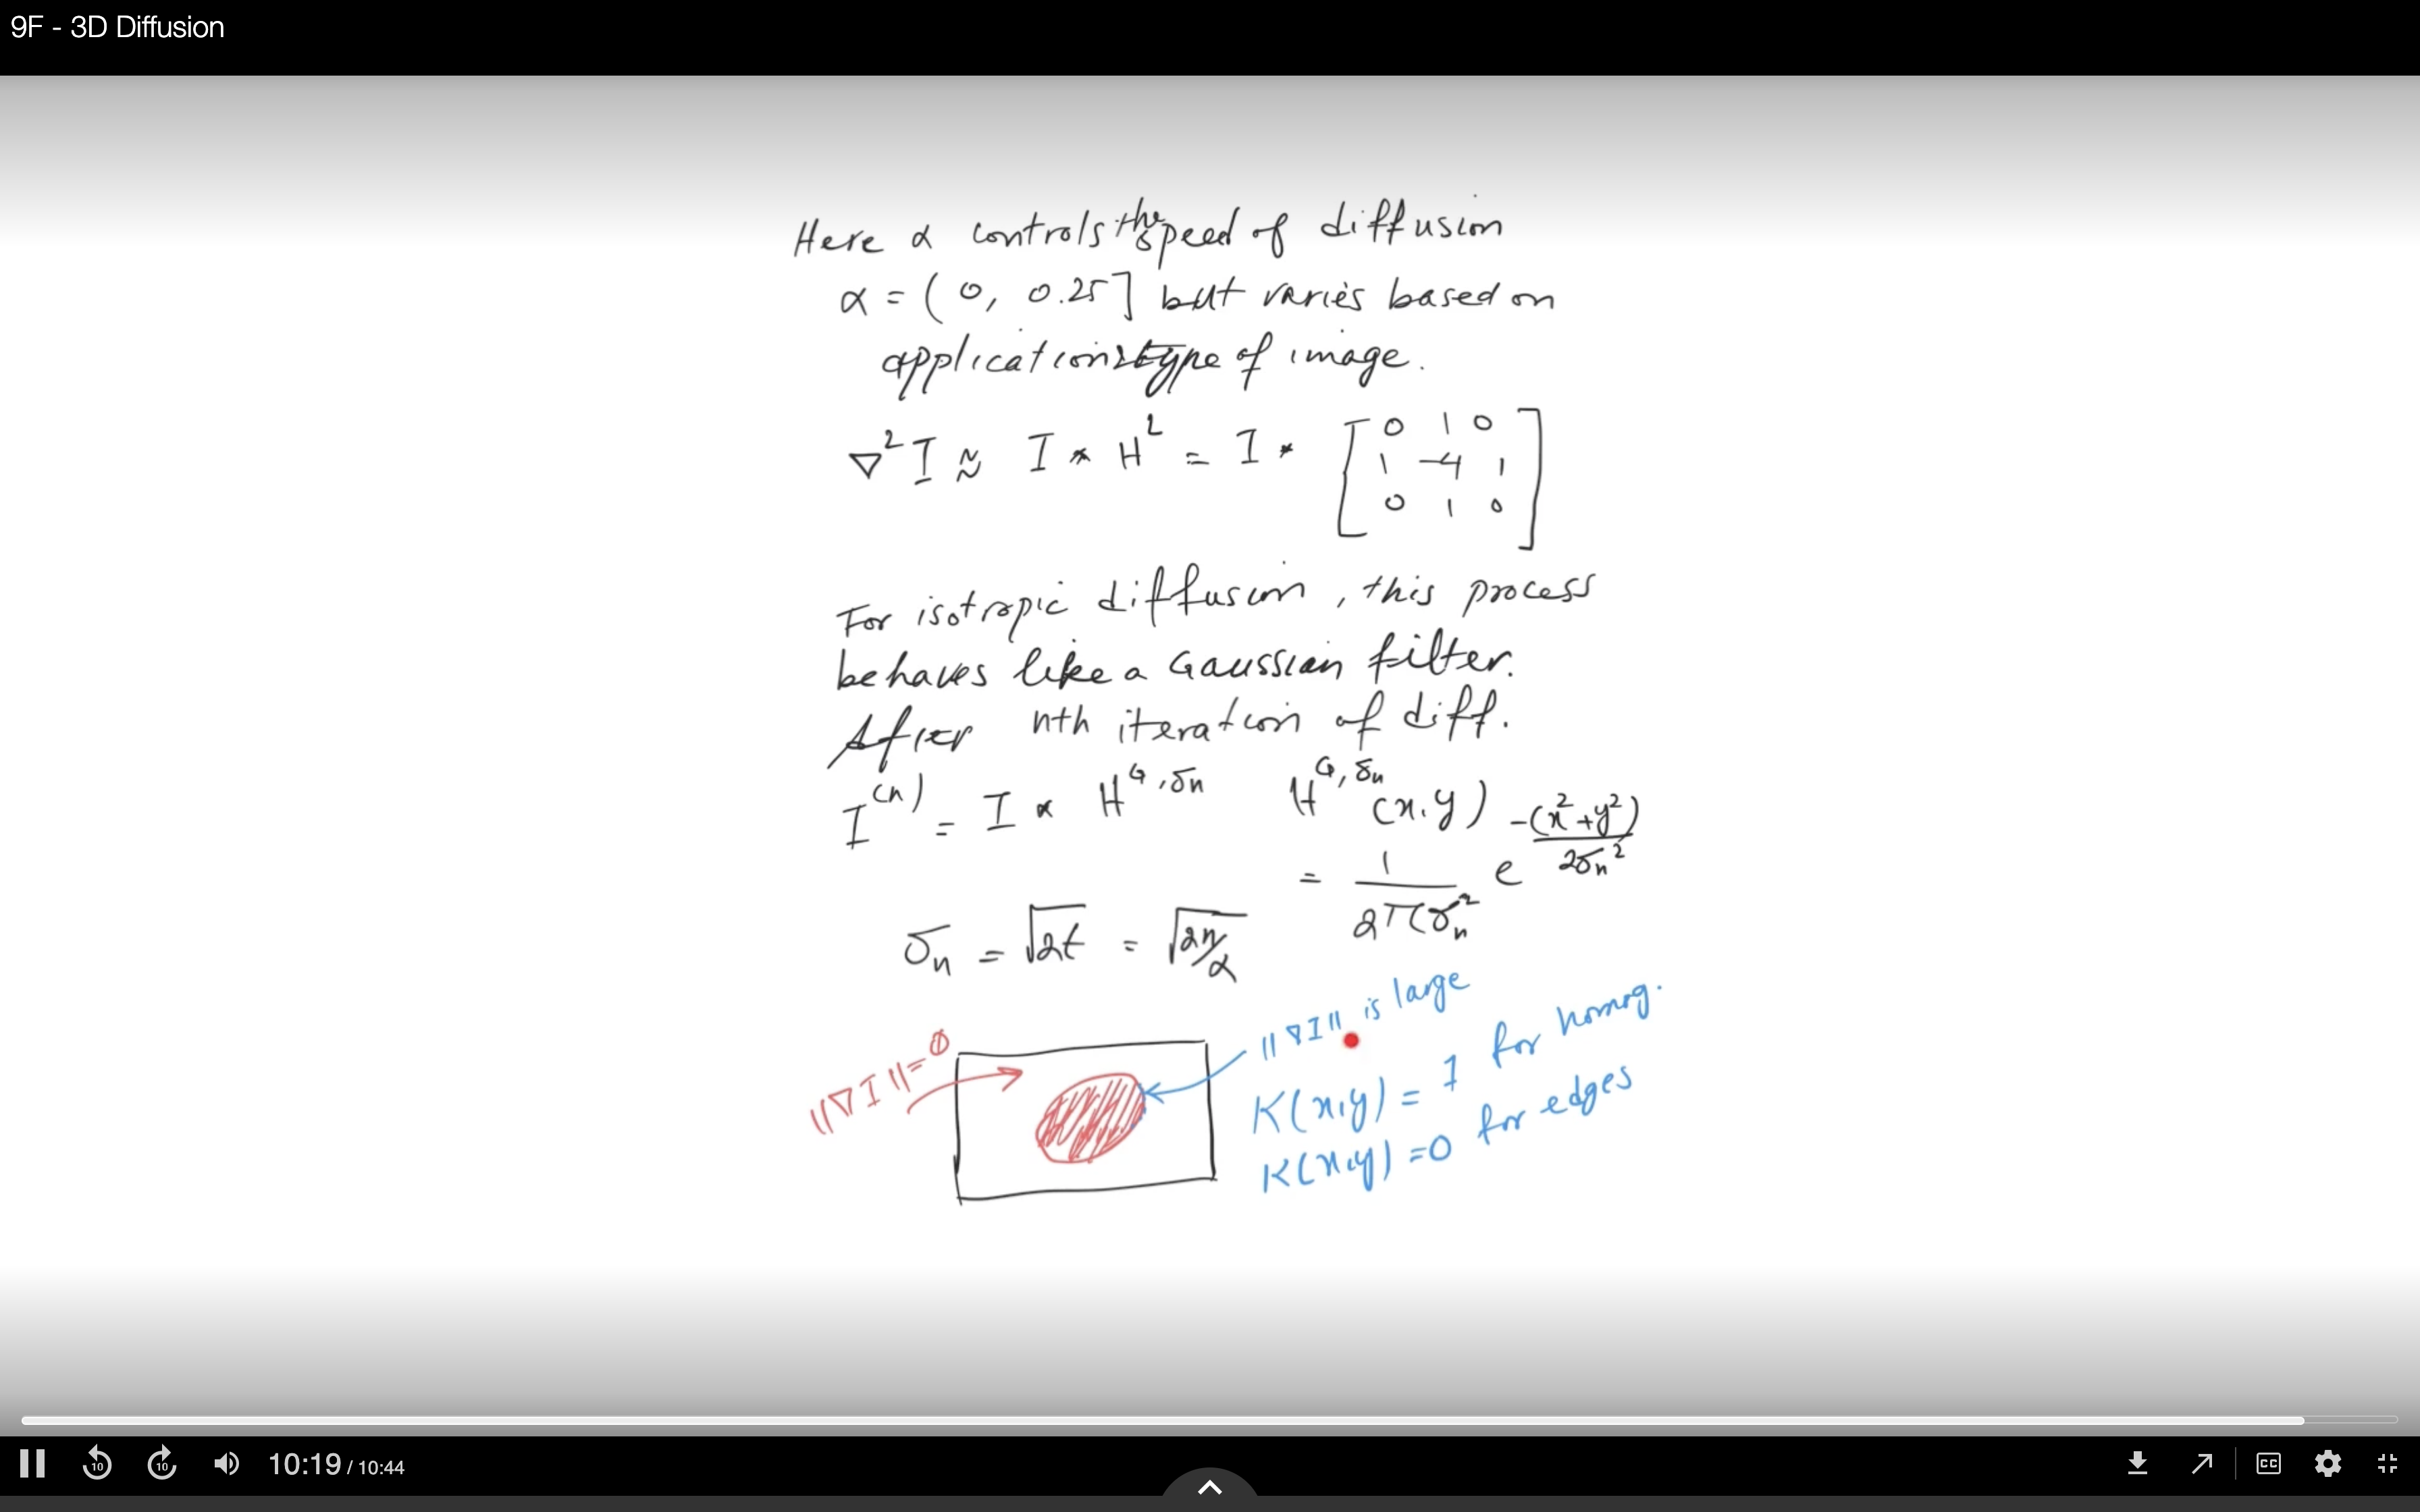 9F - 3D Diffusion
Here α controls the speed of diffusion
α = (0, 0.25] but varies based on
application & type of image.
∇²I ≈ I * H^L = I * [0 1 0
1 -4 1
0 1 0]
For isotropic diffusion, this process
behaves like a Gaussian filter.
After nth iteration of diff.
I^(n) = I * H^G,σn H^G,σn (x,y)
= 1/(2πσn²) e^(-(x²+y²)/(2σn²))
σn = √2t = √2n/α
||∇I|| = 0
||∇I|| is large
K(x,y) = 1 for homog.
K(x,y) = 0 for edges
10 10 10:19 / 10:44 CC